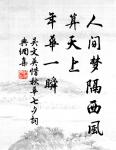 人间梦隔西风
算天上
年华一瞬
吴文英惜秋华七夕词
典纲集